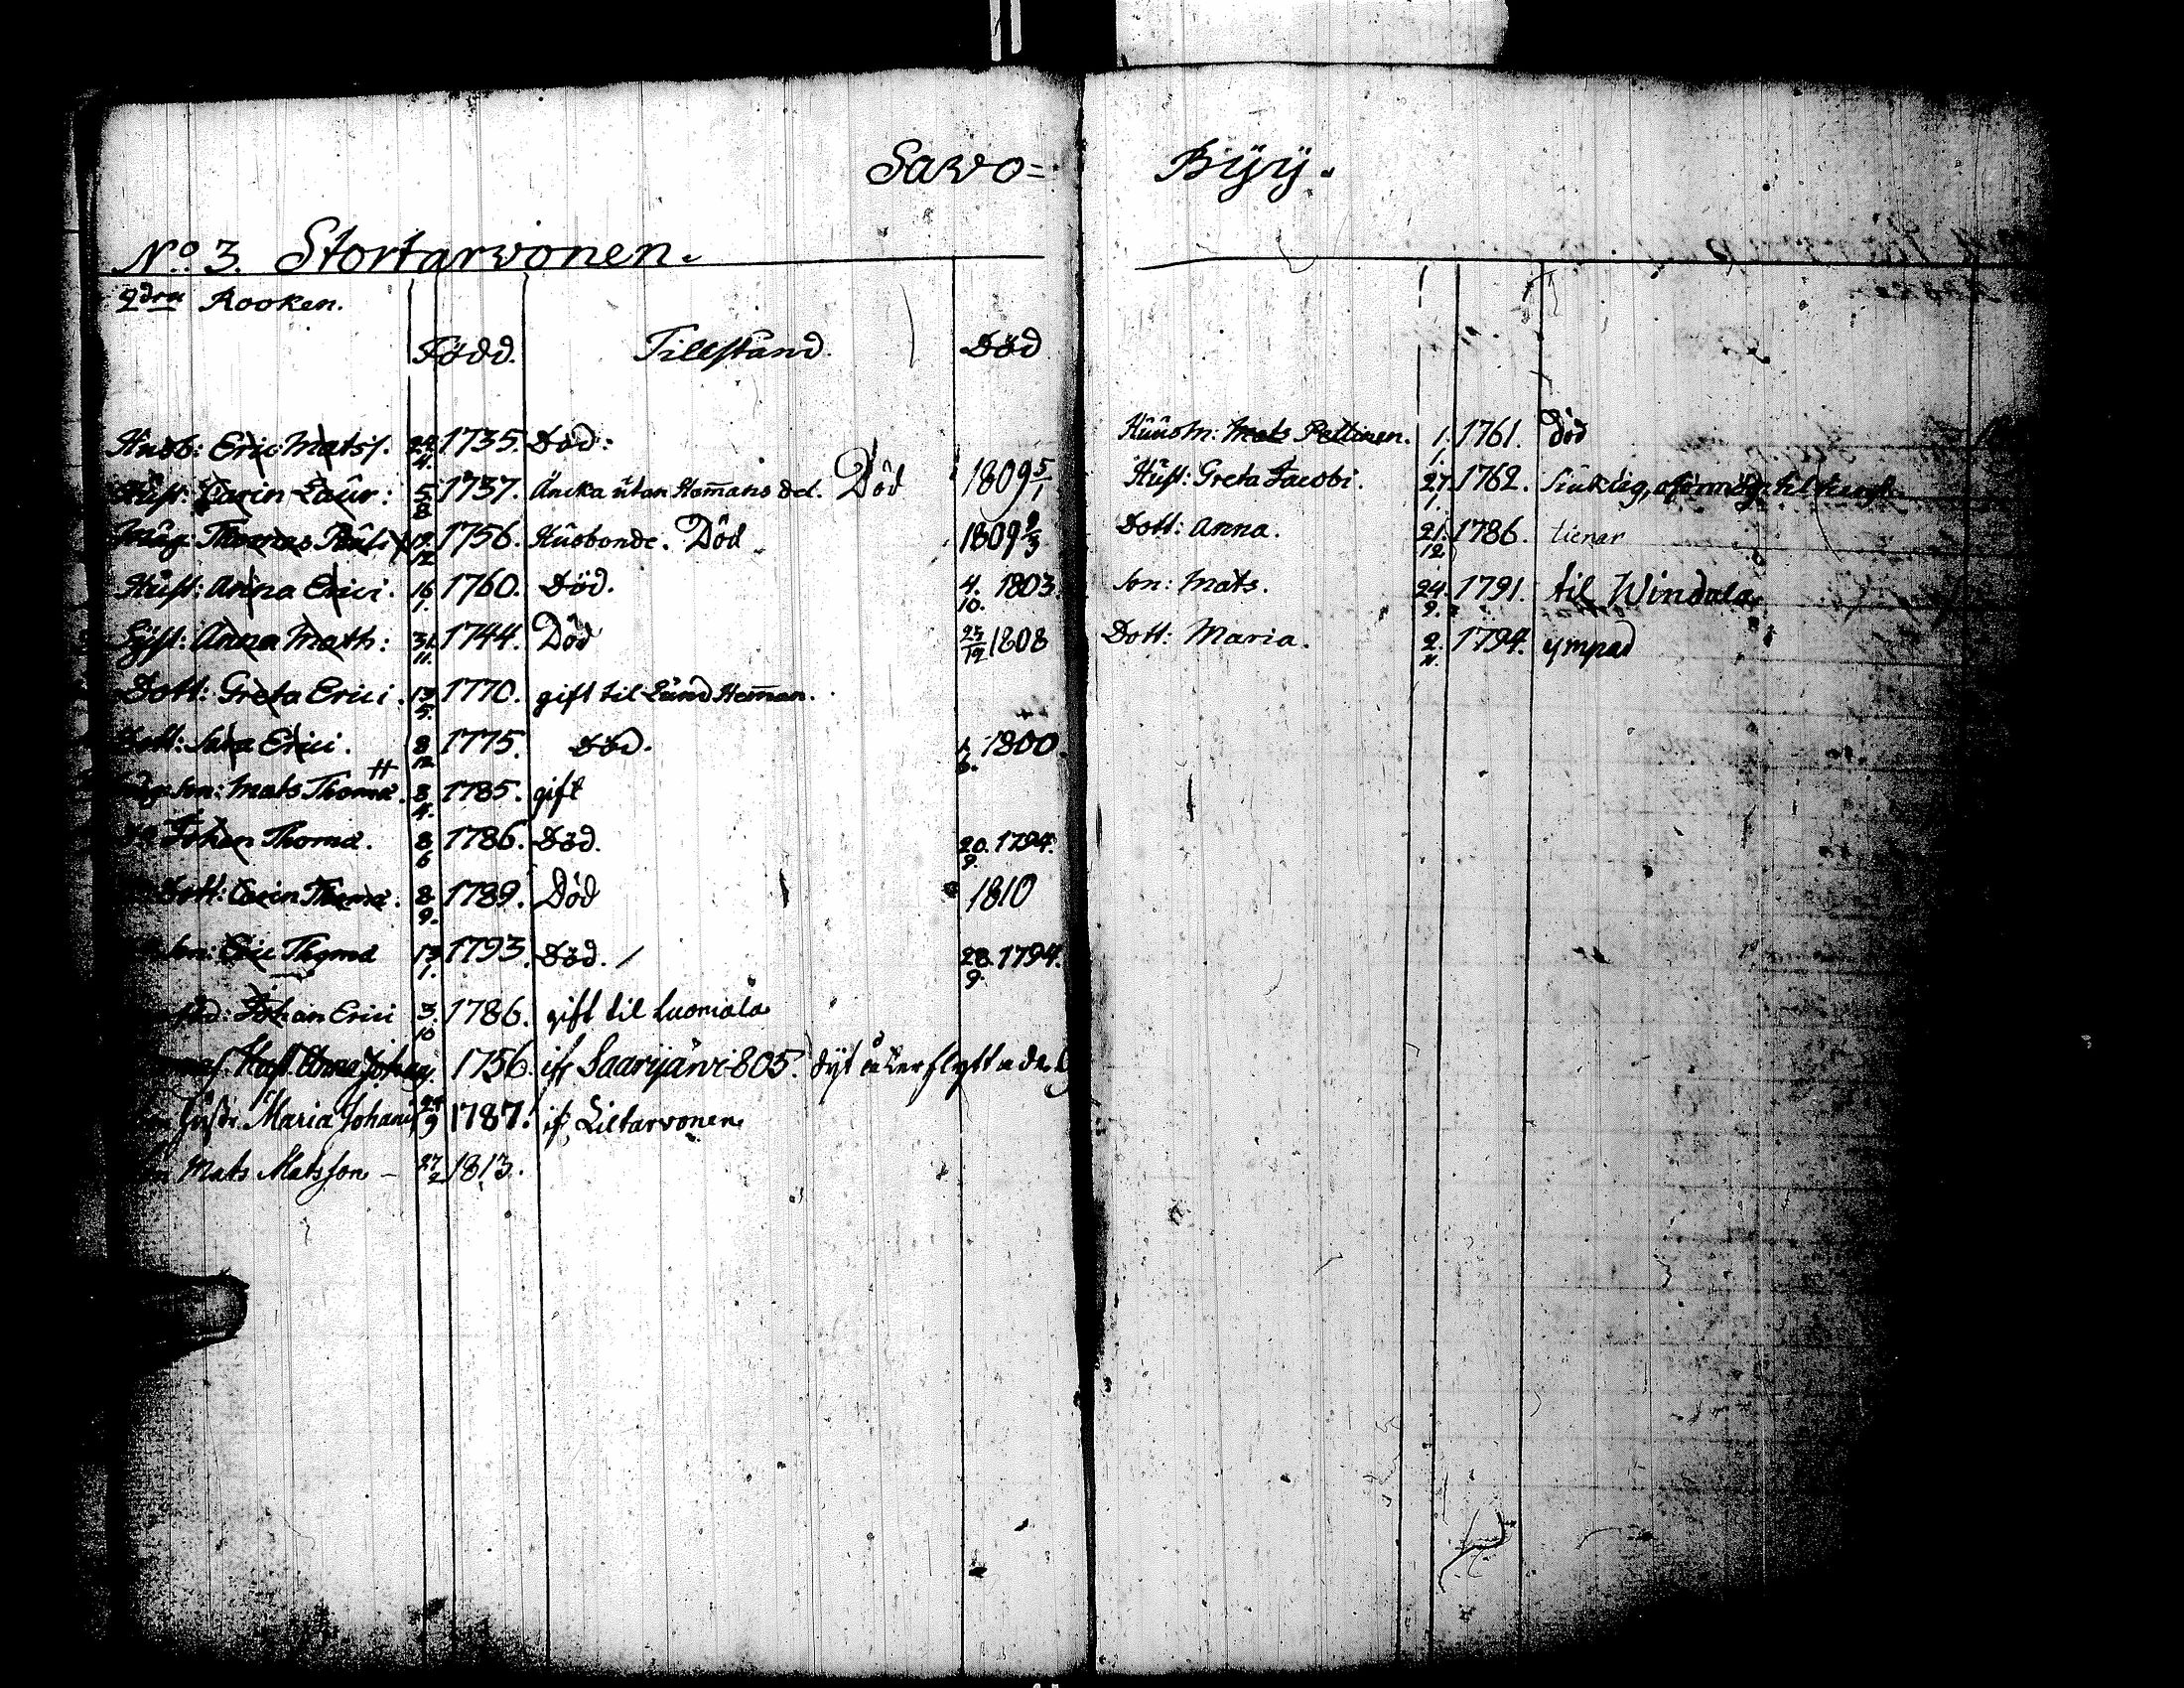 Sawo=
Byÿ.
No. 3. Stortarvonen.
2dra Rooken.
Född. Tillstånd. Död
Husb: Eric Matss. 24. 4. 1735. Död.
Hust: Carin Laur: 5 8 1737. Äncka utan Hemans del. Död 1809 5/1
Måg: Thomas Påul: 19. 12. 1756. Husbonde. Död 1809 2/3
Hust: Anna Erici. 16 1. 1760. Död. 4. 10. 1803
Gifst: Anna Math: 31. 11. 1744. Död 25/12 1808
Dott: Greta Erici. 13 5. 1770. gift til Lund Heman.
Dott: Sara Erici. 8 12. 1775. Död. 1. 6. 1800.
Son: Mats Thomæ. # 8 4. 1785. gift
Johan Thomæ. 8 6 1786. Död. 20. 9. 1794.
Dott: Carin Thomæ. 8. 9. 1789. Död 1810
Son: Eric Thomæ 13 1. 1793. Död. 28. 9. 1794.
Johan Erici 3. 10 1786. gift til Luomala
Hust. Anna Johan 1756. ifr Saarijärvi 805. dyt åter flyttade
Hustr. Maria Johans 24 9 1787. if. Liltarvonen.
Mats Matsson – 27 2 1813.
Huusm: Mats Peltinen. 1. 1. 1761. död
Hust: Greta Jacobi. 27. 1. 1762. Siuklig, oförmögen til tienst
Dott: Anna. 21. 12. 1786. tienar
Son: Mats. 24. 9. 1791. til Windala
Dott: Maria. 2. 11. 1794. ympad